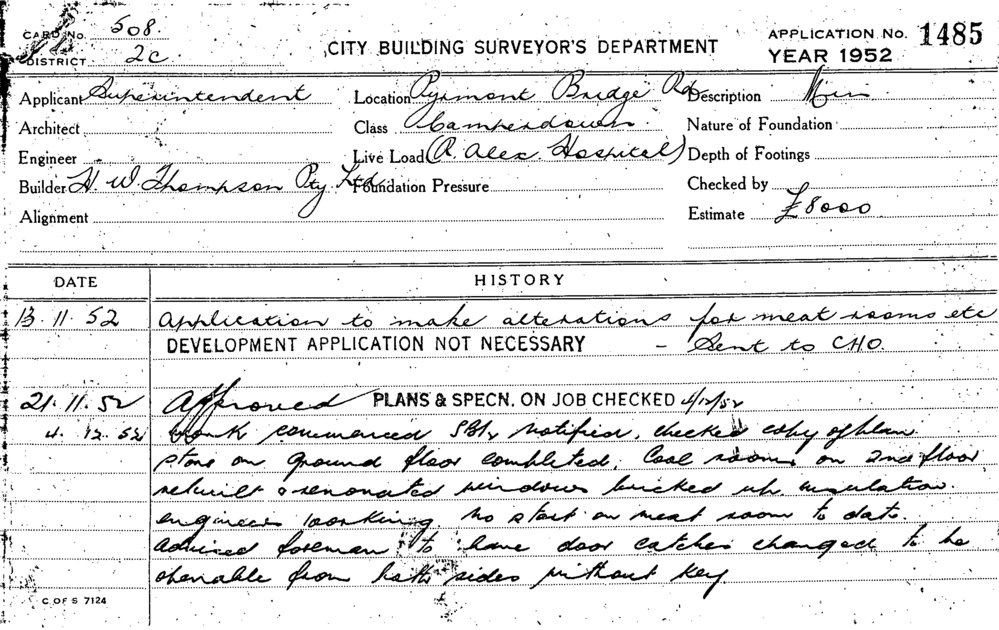 CARD No. 508.
DISTRICT 2C
CITY BUILDING SURVEYOR'S DEPARTMENT
APPLICATION No. 1485
YEAR 1952
Applicant Superintendent Location Pyrmont Bridge Rd Description Min
Architect Class Camperdown Nature of Foundation
Engineer Live Load (R. Alex. Hospital) Depth of Footings
Builder H. W. Thompson Pty. Ltd Foundation Pressure Checked by
Alignment Estimate £8000
DATE HISTORY
13. 11. 52 Application to make alterations for meat rooms etc
DEVELOPMENT APPLICATION NOT NECESSARY - Sent to CHO.
21. 11. 52 Approved PLANS & SPECN. ON JOB CHECKED 4/12/52
4. 12. 52 Work commenced notified, checked copy of plan
store on ground floor completed. Cool rooms on 2nd floor
rebuilt & renovated windows bricked up. insulation
engineers working no start on meat room to date.
Advised foreman to have door catches changed to be
openable from both sides without key
C OF S 7124